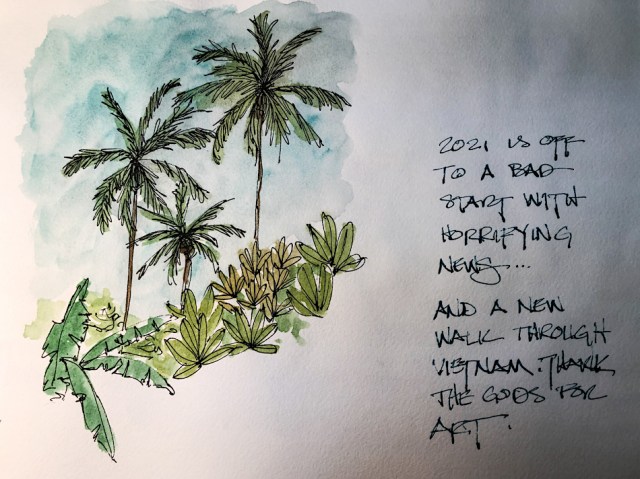 2021 IS OFF
TO A BAD
START WITH
HORRIFYING
NEWS...
AND A NEW
WALK THROUGH
VIETNAM. THANK
THE GODS FOR
ART.